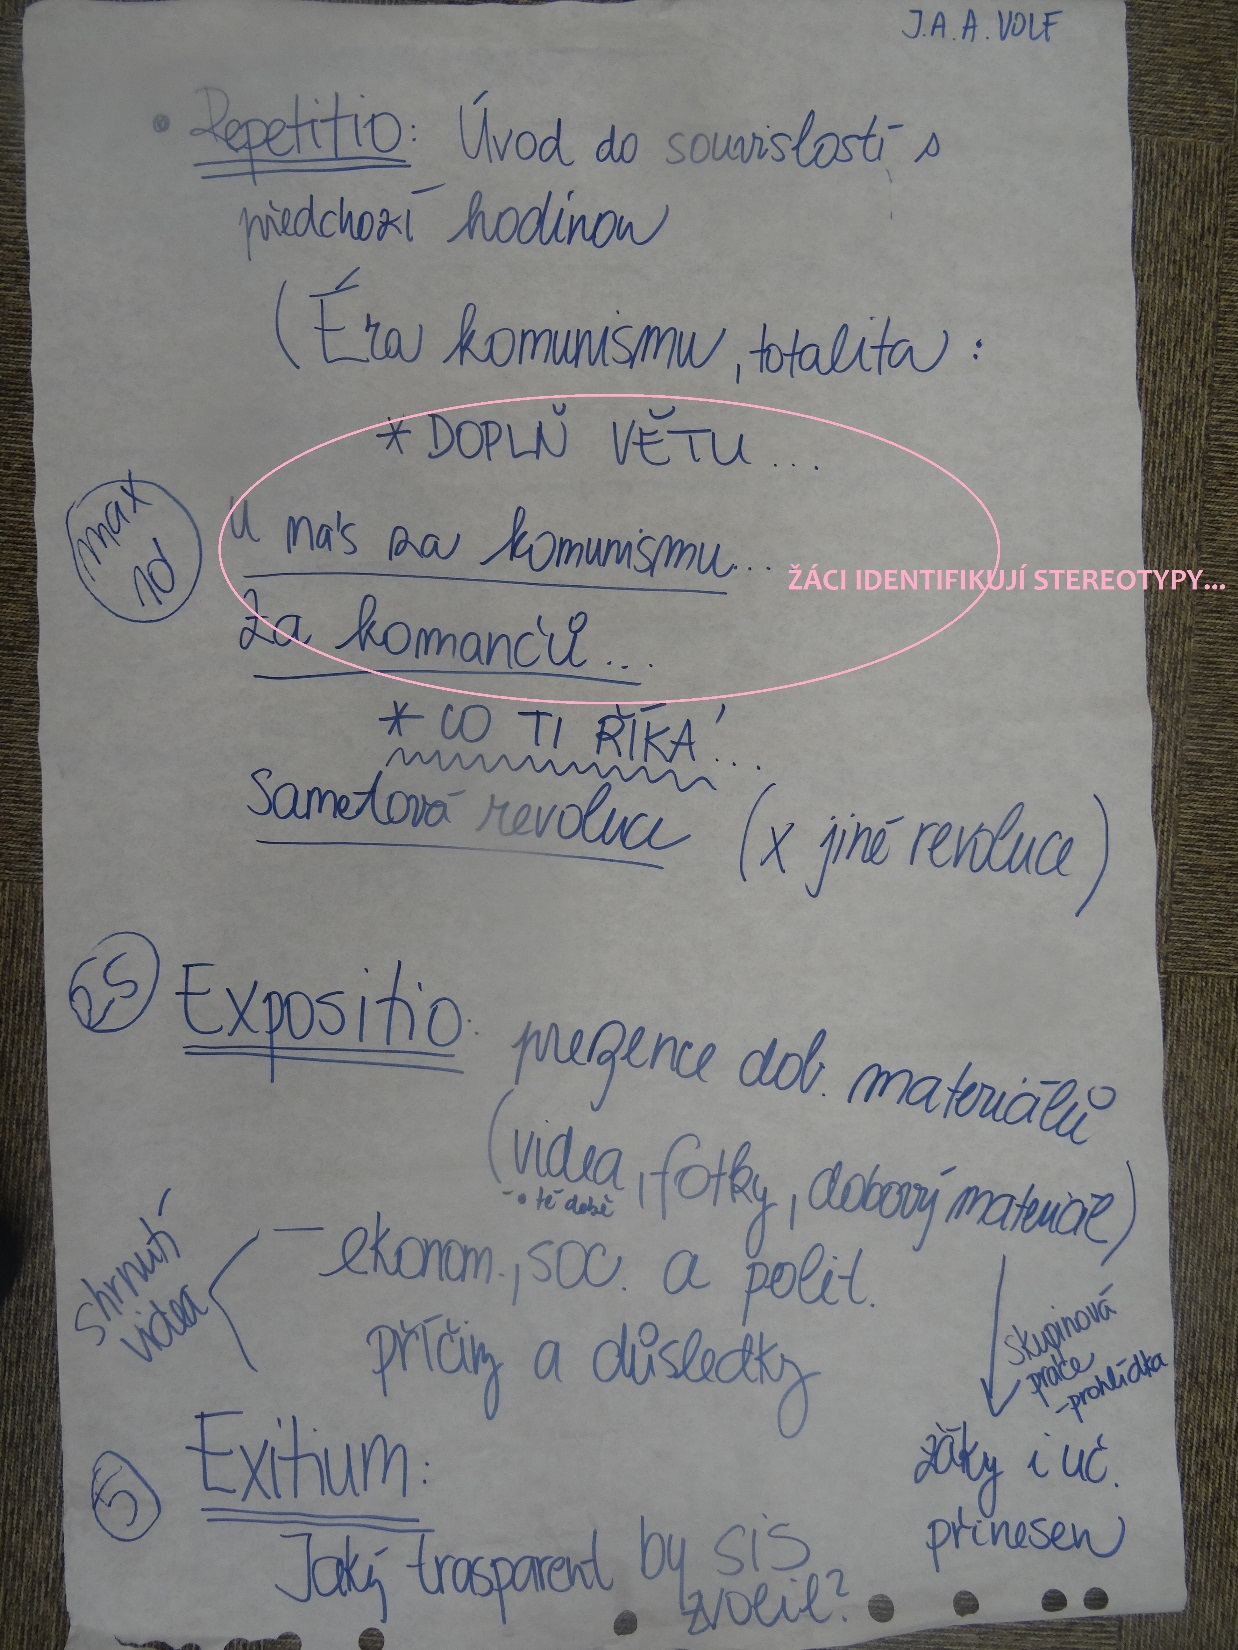 J.A.A. VOLF
• Repetitio: Úvod do souvislostí s
předchozí hodinou
(Éra komunismu, totalita:
* DOPLŇ VĚTU...
max
10
U nás za komunismu...
ŽÁCI IDENTIFIKUJÍ STEREOTYPY...
Za komančů...
* CO TI ŘÍKÁ...
Sametová revoluce (x jiné revoluce)
25
Expositio: prezence dob. materiálů
(videa, fotky, dobový materiál)
- o té době
shrnutí
videa
– ekonom., soc. a polit.
příčiny a důsledky
skupinová
práce
-prohlídka
žáky i uč.
přinesen
5
Exitium:
Jaký trasparent by sis
zvolil?